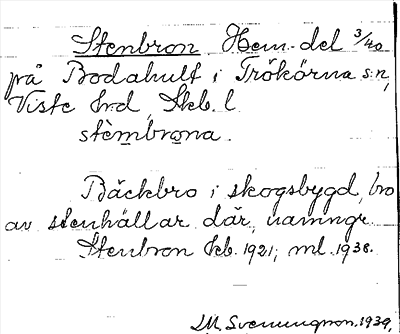 Stenbron Hem.-del 3/40
på Bodahult i Trökörna s:n,
Viste hrd, Skb. l.
stèmbrona.
Bäckbro i skogsbygd, bro
av stenhällar där, namngr.
Stenbron Jkb. 1921; ml. 1938.
Svenungsson. 1939.